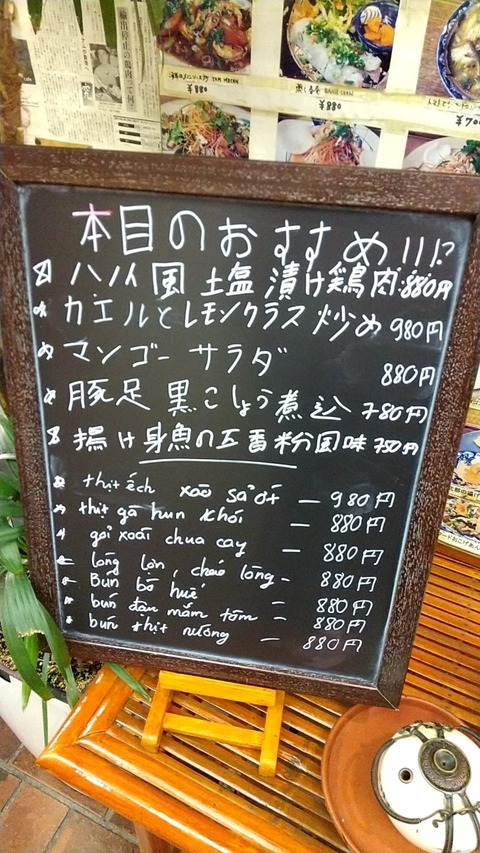 ¥880
蒸し春巻 BANH CUON
¥880
本目のおすすめ!!!?
ハノイ風 土塩漬け鶏肉 880円
カエルとレモングラス炒め 980円
マンゴーサラダ 880円
豚足黒こしょう煮込 780円
揚げ身魚の五香粉風味 750円
thịt ếch xào sả ớt — 980円
thịt gà hun khói — 880円
gỏi xoài chua cay — 880円
lòng lợn, cháo lòng - 880円
Bún bò huế - 880円
bún đậu mắm tôm - 880円
bún thịt nướng — 880円